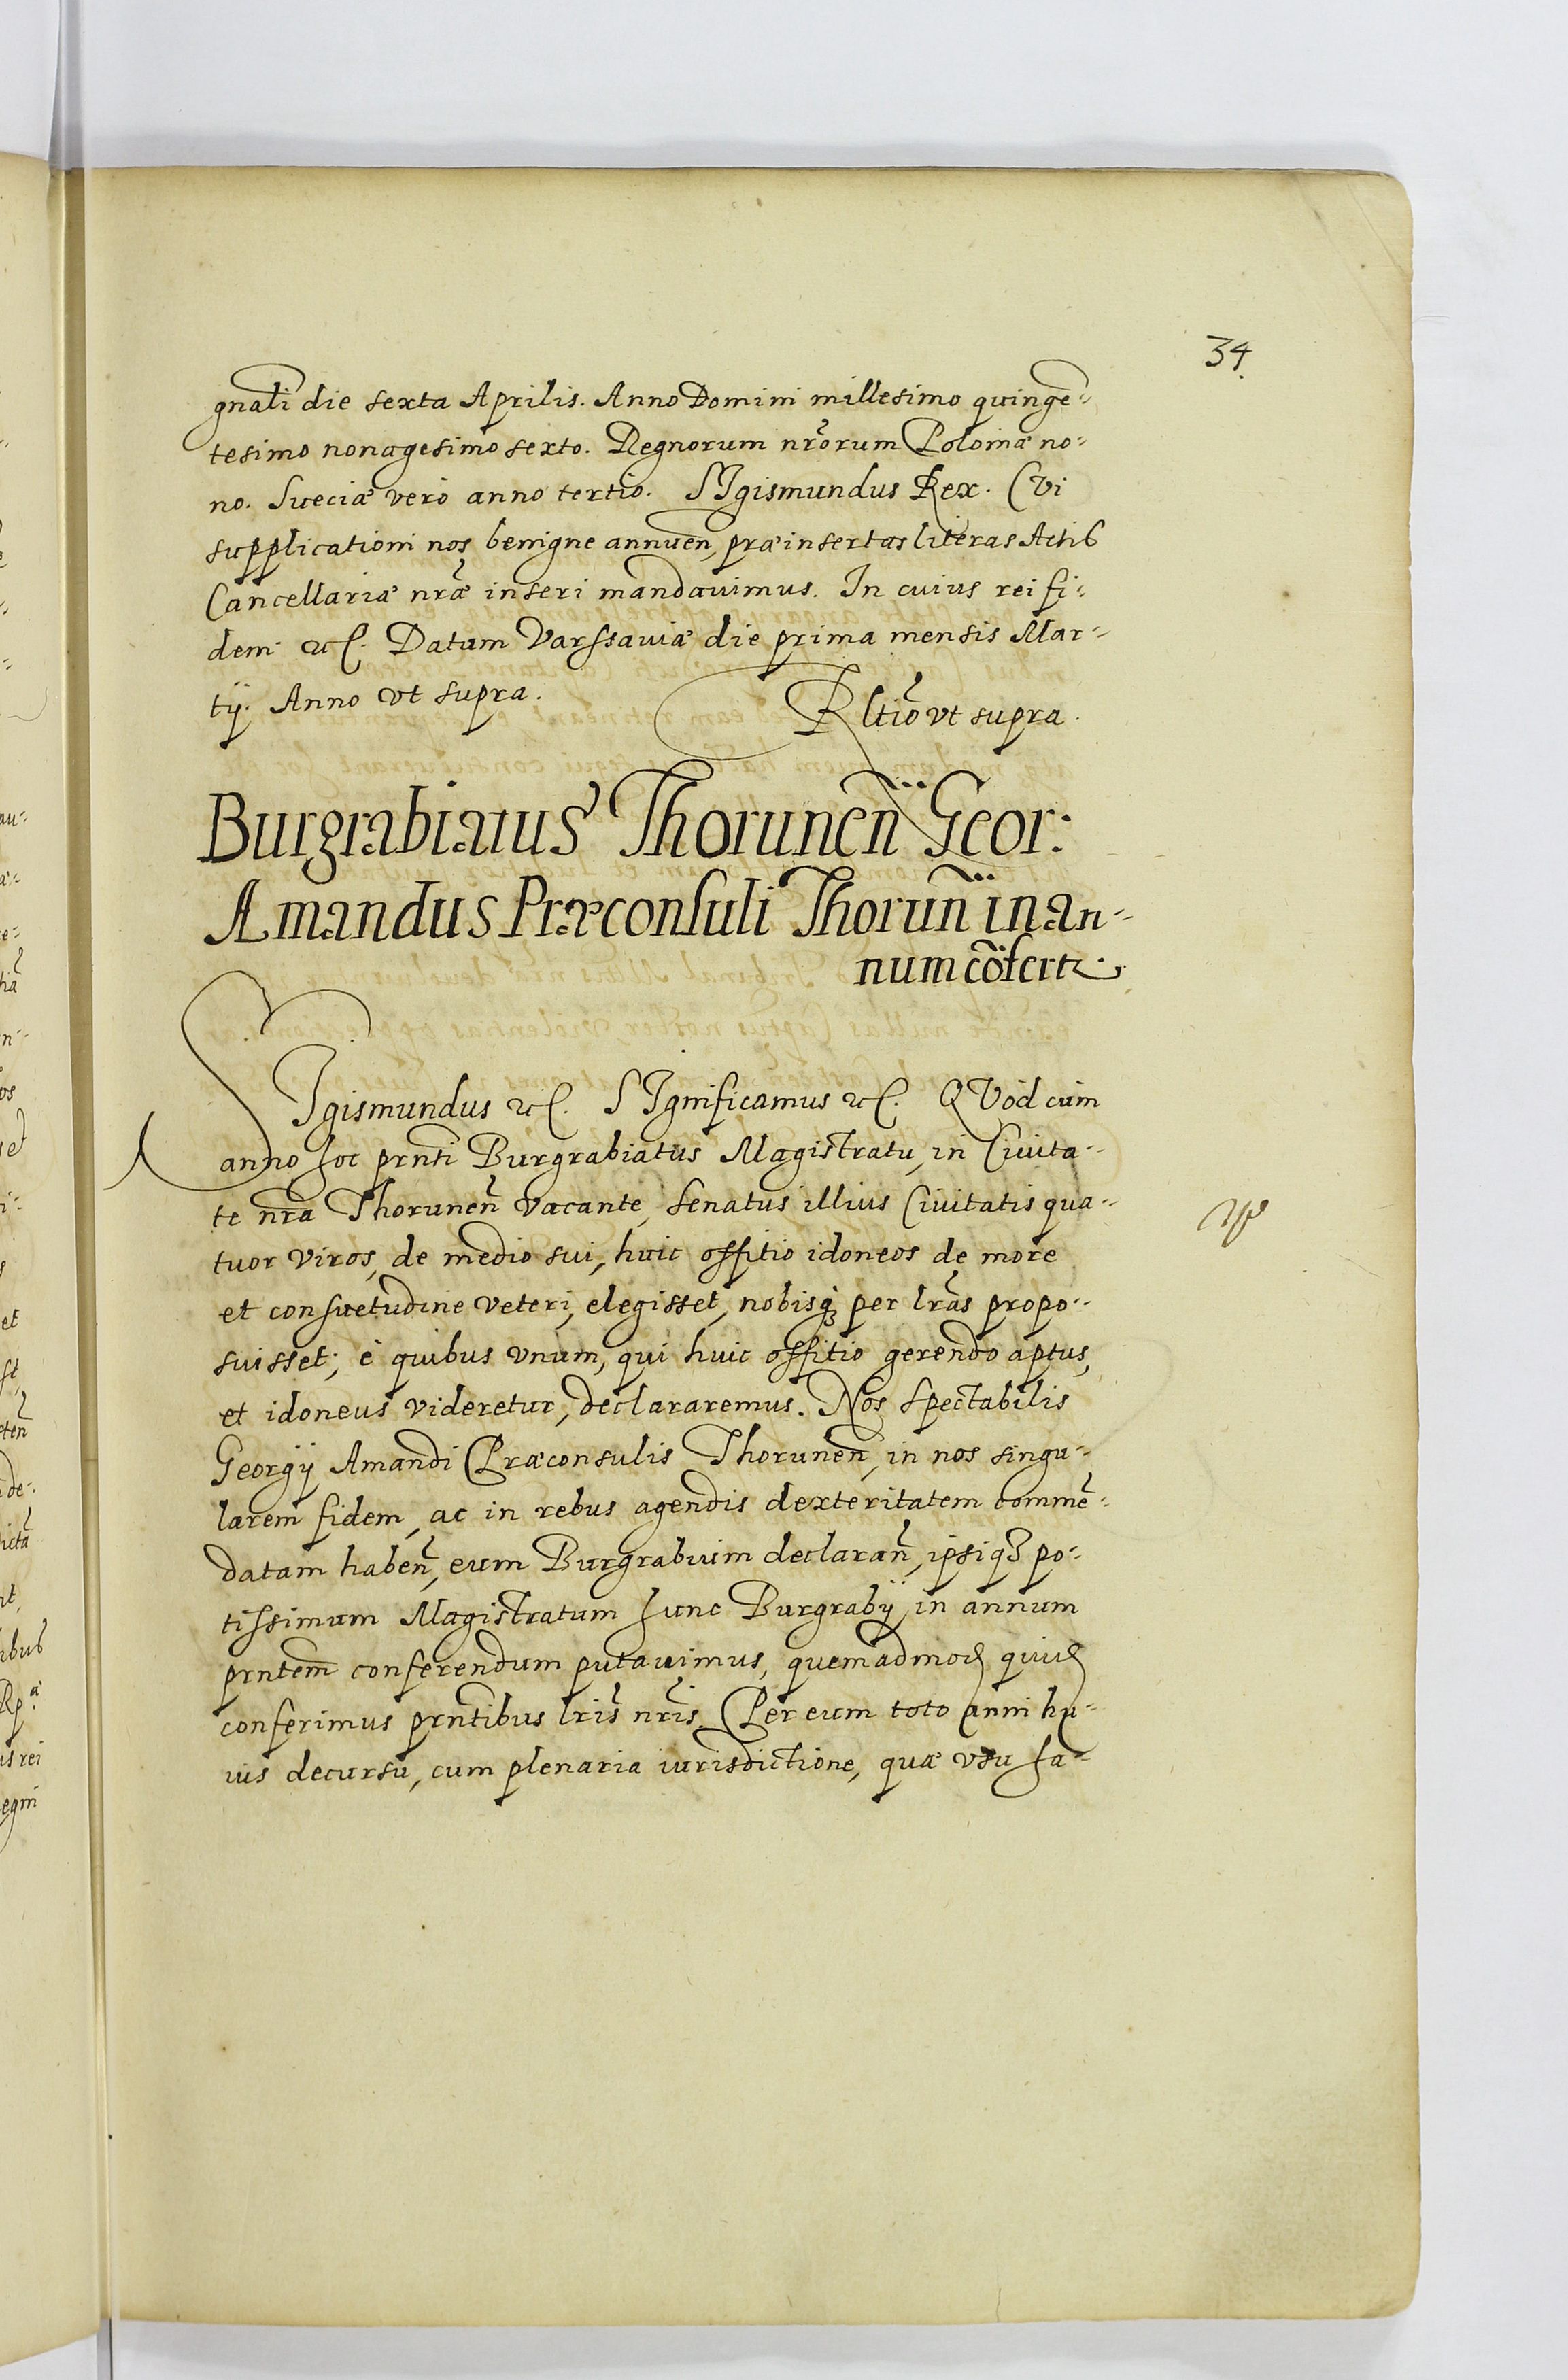 34.
gnali die sexta Aprilis. Anno Domini millesimo quingē=
tesimo nonagesimo sexto. Regnorum nr̃orum Poloniæ no=
no. Sueciæ verò anno tertio. SIgismundus Rex. CVi
supplicationi nos benigne annueñ, præinsertas literas Actis
Cancellariæ nr̃æ inseri mandauimus. In cuius rei fi=
dem etc. Datum Varssauiæ die prima mensis Mar=
tij. Anno vt supra.
Rltiõ vt supra.
Burgrabiatus Thoruneñ Geor:
Amandus Præconsuli Thoruñ in an=
num cõfertr.
SIgismundus etc. SIgnificamus etc. QVòd cùm
anno hoc prnti Burgrabiatus Magistratu, in Ciuita=
te nrã Thoruneñ vacante, senatus illius Ciuitatis qua=
tuor viros, de medio sui, huic offitio idoneos de more
et consuetudine veteri, elegisset, nobisq; per lrãs propo=
suisset; è quibus vnum, qui huic offitio gerendo aptus,
et idoneus videretur, declararemus. Nos spectabilis
Georgij Amandi Præconsulis Thoruneñ, in nos singu=
larem fidem, ac in rebus agendis dexteritatem commẽ=
datam habeñ, eum Burgrabium declarañ, ipsiq; po=
tissimum Magistratum hunc Burgrabij in annum
prntem conferendum putauimus, quemadmod quid
conferimus prntibus lris nris. Per eum toto anni hu=
ius decursu, cum plenaria iurisdictione, quæ vsu ha=